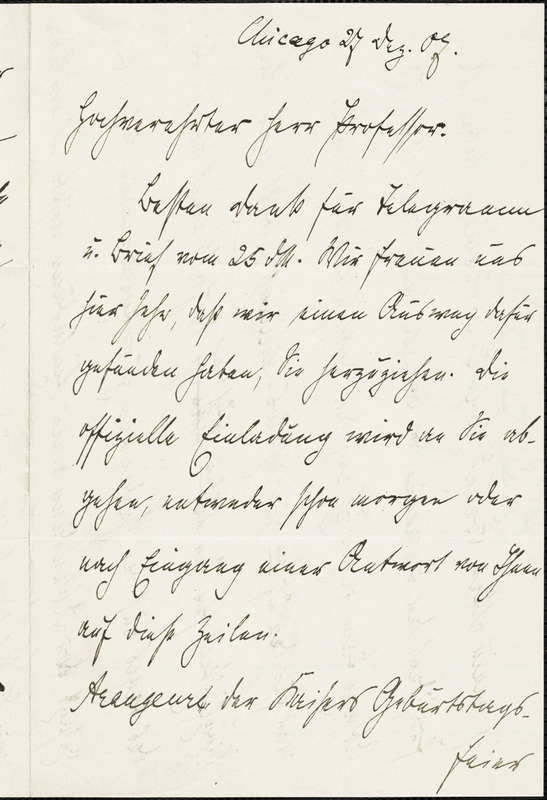 Chicago 27 Dez. 07.
Hochverehrter Herr Professor.
Besten Dank für Telegramm
u. Brief vom 25 ds. Wir freuen uns
hier sehr, daß wir einen Ausweg dafür
gefunden haben, Sie herzuziehen. Die
offizielle Einladung wird an Sie ab-
gehen, entweder schon morgen oder
nach Eingang einer Antwort von Ihnen
auf diese Zeilen.
der Kaisers Geburtstags-
feier